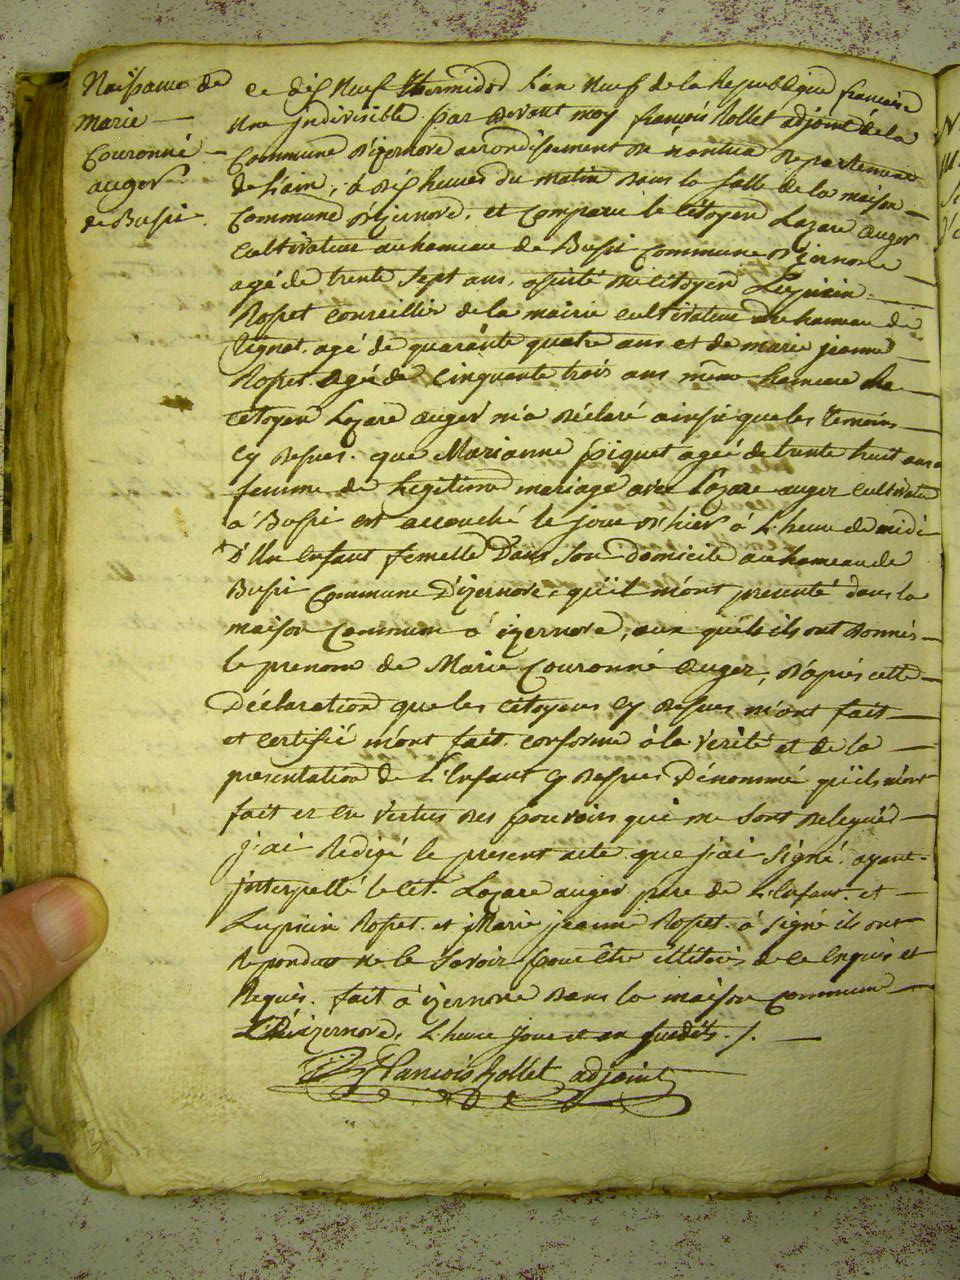 Naissance de
marie —
Couronné —
auger
de Bussi.
Ce dix neuf thermidor L'an neuf de la Republique francaise
une indivisible par devant moy francois Rollet adjoint de la
Commune d'izernore arrondissement de nantua departement
de L'ain, à dix heures du matin dans la salle de la maison —
Commune d'izernore, est comparu le citoyen Lazare auger
cultivateur au hameau de Bussi Commune d'izernore
agé de trente sept ans, assisté du citoyen Lupicin —
Rosset conseiller de la mairie cultivateur au hameau de
Tignat agé de quarante quatre ans et de marie jeanne
Rosset agée de cinquante trois ans même hameau Le —
citoyen Lazare auger m'a déclaré ainsi que les temoins —
cy dessus. que Marianne piquet agée de trente huit ans
femme de Legitime mariage avec Lazare auger cultivateur
à Bussi est accouché le jour d'hier à L'heure de midi
D'Un enfant femelle Dans son domicile au hameau de
Bussi Commune D'izernore, qu'il m'ont presenté dans la
maison Commune à izernore, aux quels ils ont donnés —
le prenom de Marie Couronné auger, d'après cette —
Déclaration que les citoyens cy dessus m'ont fait —
et certifié m'ont fait conforme à la verité et de la —
presentation de L'Enfant cy dessus Dénommé qu'ils m'ont
fait et en vertus des pouvoirs qui me sont delegués —
j'ai Redigé le present acte que j'ai signé. ayant
interpellé le cit. Lazare auger pere de L'Enfant et —
Lupicin Rosset. et Marie jeanne Rosset. à signé ils ont
Repondus ne le savoir pour être illiterés de ce enquis et
Requis. fait à izernore dans la maison commune —
d'izernore, L'heure jour et an susdits. /. —
francois Rollet adjoint